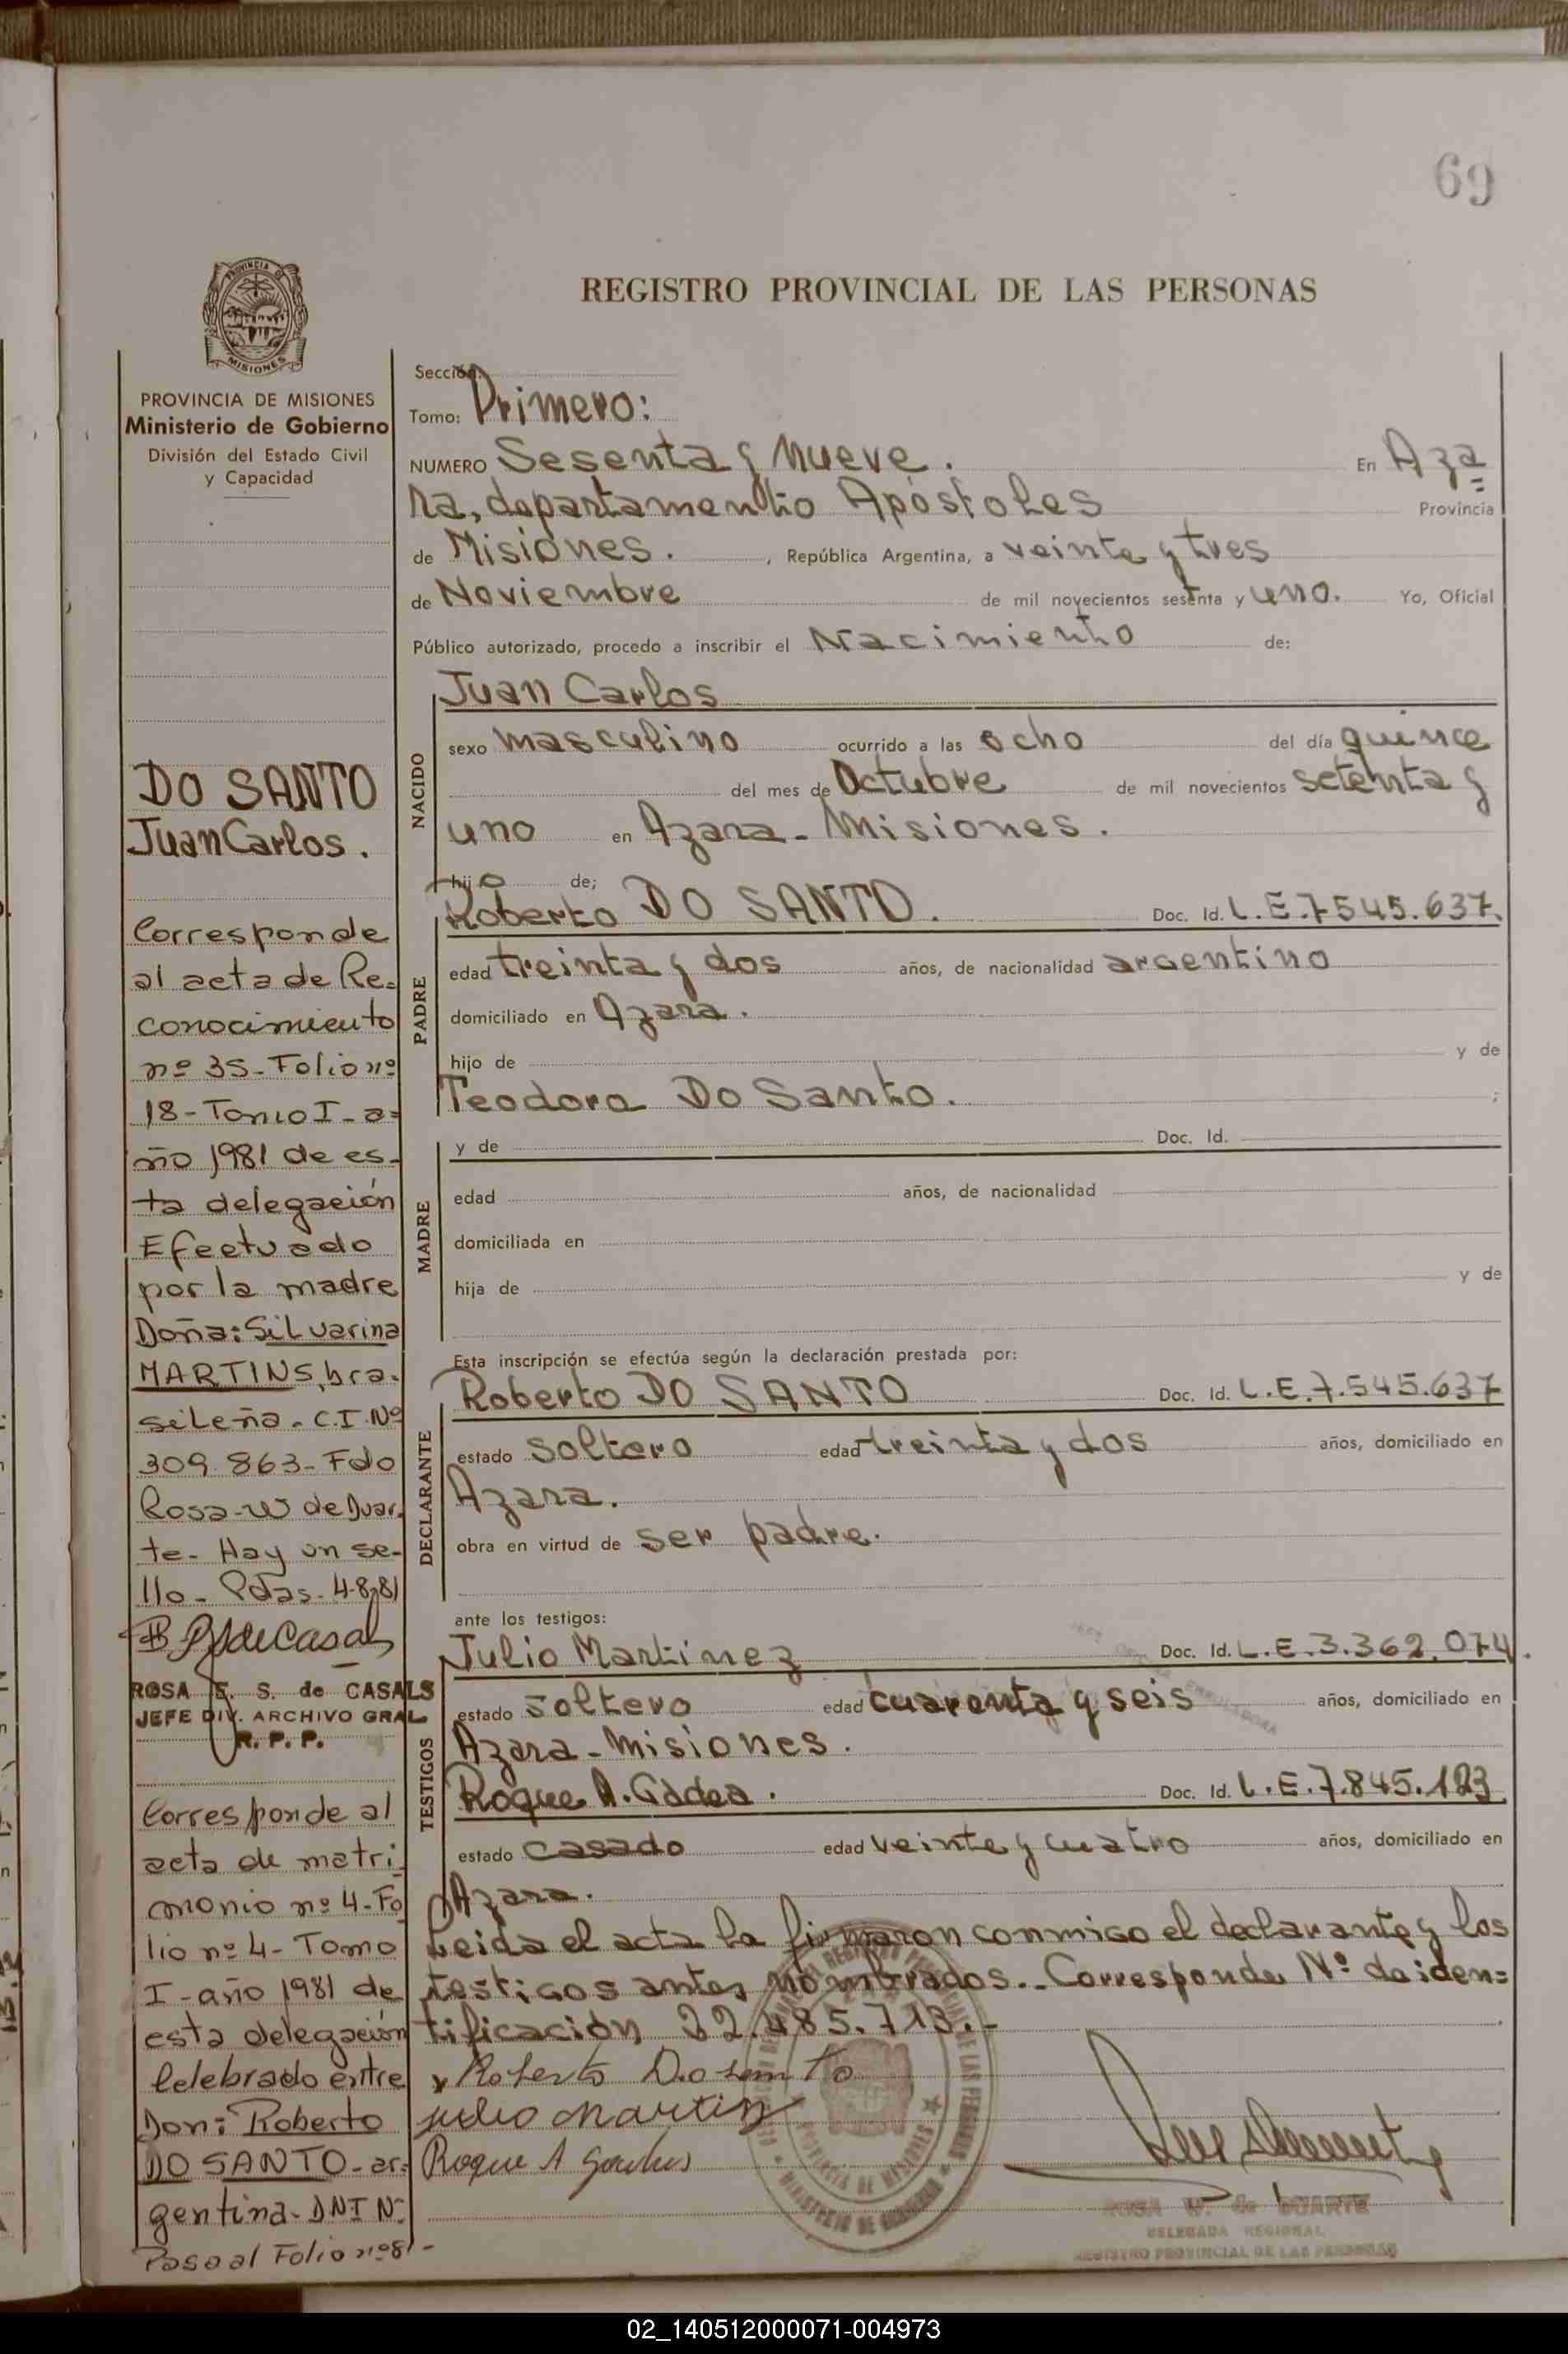 69
PROVINCIA DE
MISIONES
REGISTRO PROVINCIAL DE LAS PERSONAS
PROVINCIA DE MISIONES
Ministerio de Gobierno
División del Estado Civil
y Capacidad
DO SANTO
Juan Carlos.
Corresponde
al acta de Re=
conocimiento
nº 35-Folio nº
18-Tomo I-a=
ño 1981 de es-
ta delegación
Efectuado
por la madre
Doña: Siluarina
MARTINS, bra-
sileña. C.I. Nº
309.863-Fdo
Rosa-W de Duar-
te- Hay un se-
llo- Pdas- 4-8-81
ROSA E. S. de CASALS
JEFE DIV. ARCHIVO GRAL
R. P. P.
Corresponde al
acta de matri
monio nº 4-Fo
lio nº 4- Tomo
I-año 1981 de
esta delegación
Celebrado entre
Don: Roberto
DO SANTO-ar=
gentina-DNI N-
Pasa al Folio nº 81-
Sección:
Tomo: Primero:
NUMERO Sesenta y Nueve. En Aza=
ra, departamentio Apóstoles Provincia
de Misiones. , República Argentina, a veinte y tres
de Noviembre de mil novecientos sesenta y uno. Yo, Oficial
Público autorizado, procedo a inscribir el Nacimiento de:
NACIDO
Juan Carlos
sexo masculino ocurrido a las ocho del día quince
del mes de Octubre de mil novecientos setenta y
uno en Azara-Misiones.
hijo de;
PADRE
Roberto DO SANTO. Doc. Id. L.E.7545.637.
edad treinta y dos años, de nacionalidad argentino
domiciliado en Azara.
hijo de y de
Teodora Do Santo. ;
MADRE
y de Doc. Id.
edad años, de nacionalidad
domiciliada en
hija de y de
Esta inscripción se efectúa según la declaración prestada por:
DECLARANTE
Roberto DO SANTO Doc. Id. L.E.7.545.637
estado soltero edad treinta y dos años, domiciliado en
Azara.
obra en virtud de ser padre.
ante los testigos:
TESTIGOS
Julio Martinez Doc. Id. L.E.3.362.074.
estado soltero edad cuarenta y seis años, domiciliado en
Azara-Misiones.
Roque A. Gadea. Doc. Id. L.E.7.845.123
estado casado edad veinte y cuatro años, domiciliado en
Azara.
Leida el acta la firmaron conmigo el declarante y los
testigos antes nombrados.- Corresponde Nº de iden=
tificación 22.485.713.-
x Roberto Do santo
Julio Martin
Roque A
ROSA W. de DUARTE
DELEGADA REGIONAL
REGISTRO PROVINCIAL DE LAS PERSONAS
02_140512000071-004973